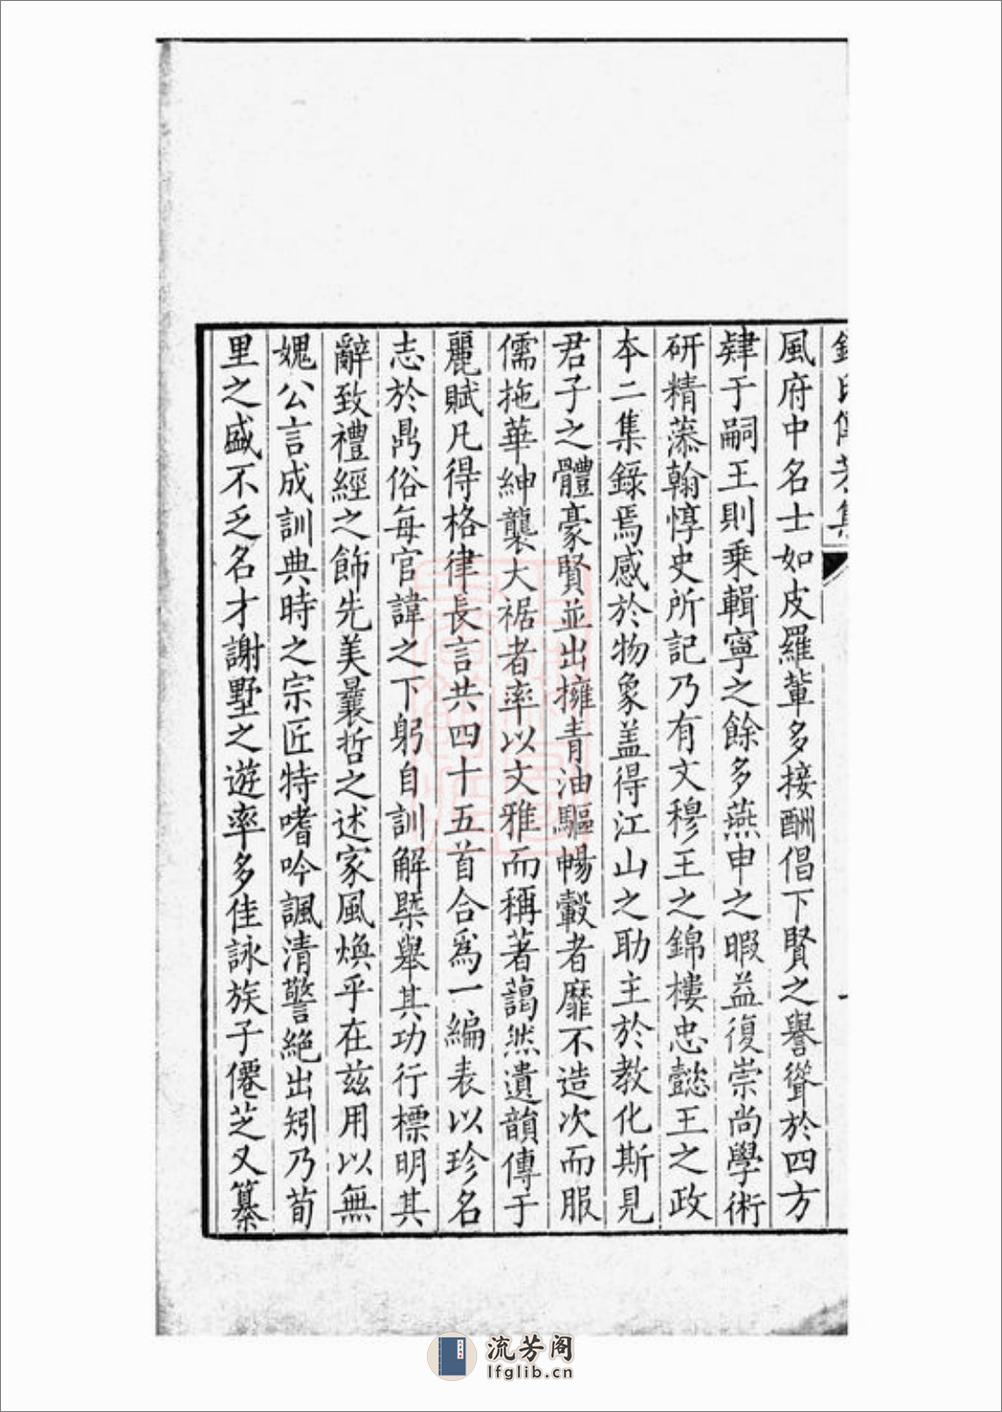 錢氏傳芳集
一
風府中名士如皮羅軰多接酬倡下賢之譽聳於四方
肄于嗣王則乗輯寧之餘多燕申之暇益復崇尚學術
研精藻翰惇史所記乃有文穆王之錦樓忠懿王之政
夲二集錄焉感於物象盖得江山之助主於教化斯見
君子之體豪賢並出擁青油驅暢轂者靡不造次而服
儒拖華紳襲大裾者率以文雅而稱著藹然遺韻傳于
麗賦凡得格律長言共四十五首合爲一編表以珍名
志於鼎俗每官諱之下躬自訓解槩舉其功行標明其
辭致禮經之飾先美曩哲之述家風煥乎在兹用以無
媿公言成訓典時之宗匠特嗜吟諷清警絶出矧乃荀
里之盛不乏名才謝墅之遊率多佳詠族子僊芝又纂
流芳阁
lfglib.cn